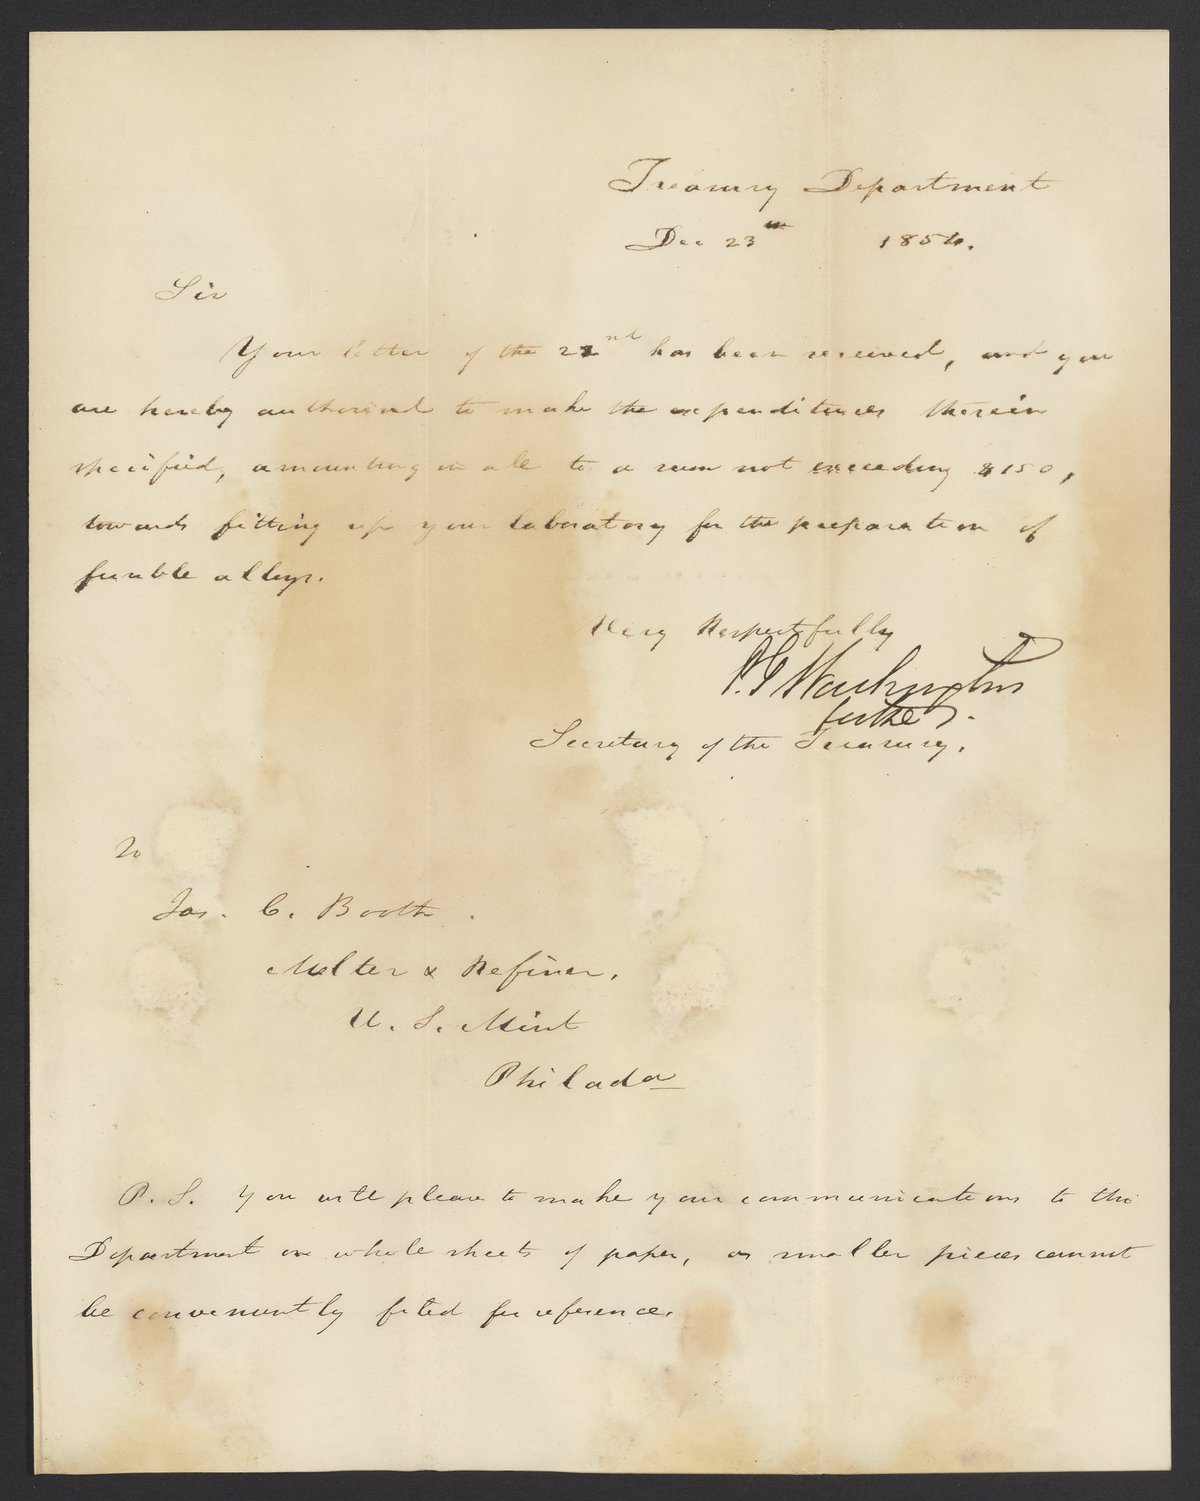 Treasury Department
Dec 23rd 1854.
Sir
Your letter of the 22nd has been received, and you
are hereby authorised to make the expenditures therein
specified, amounting in all to a sum not exceeding $150,
towards fitting up your laboratory for the preparation of
fusible alloys.
Very Respectfully
P. G. Washington
for the
Secretary of the Treasury.
To
Jas. C. Booth.
Melter & Refiner.
U. S. Mint
Philada
P. S. You will please to make your communications to this
Department on whole sheets of paper, as smaller pieces cannot
be conveniently filed for reference.